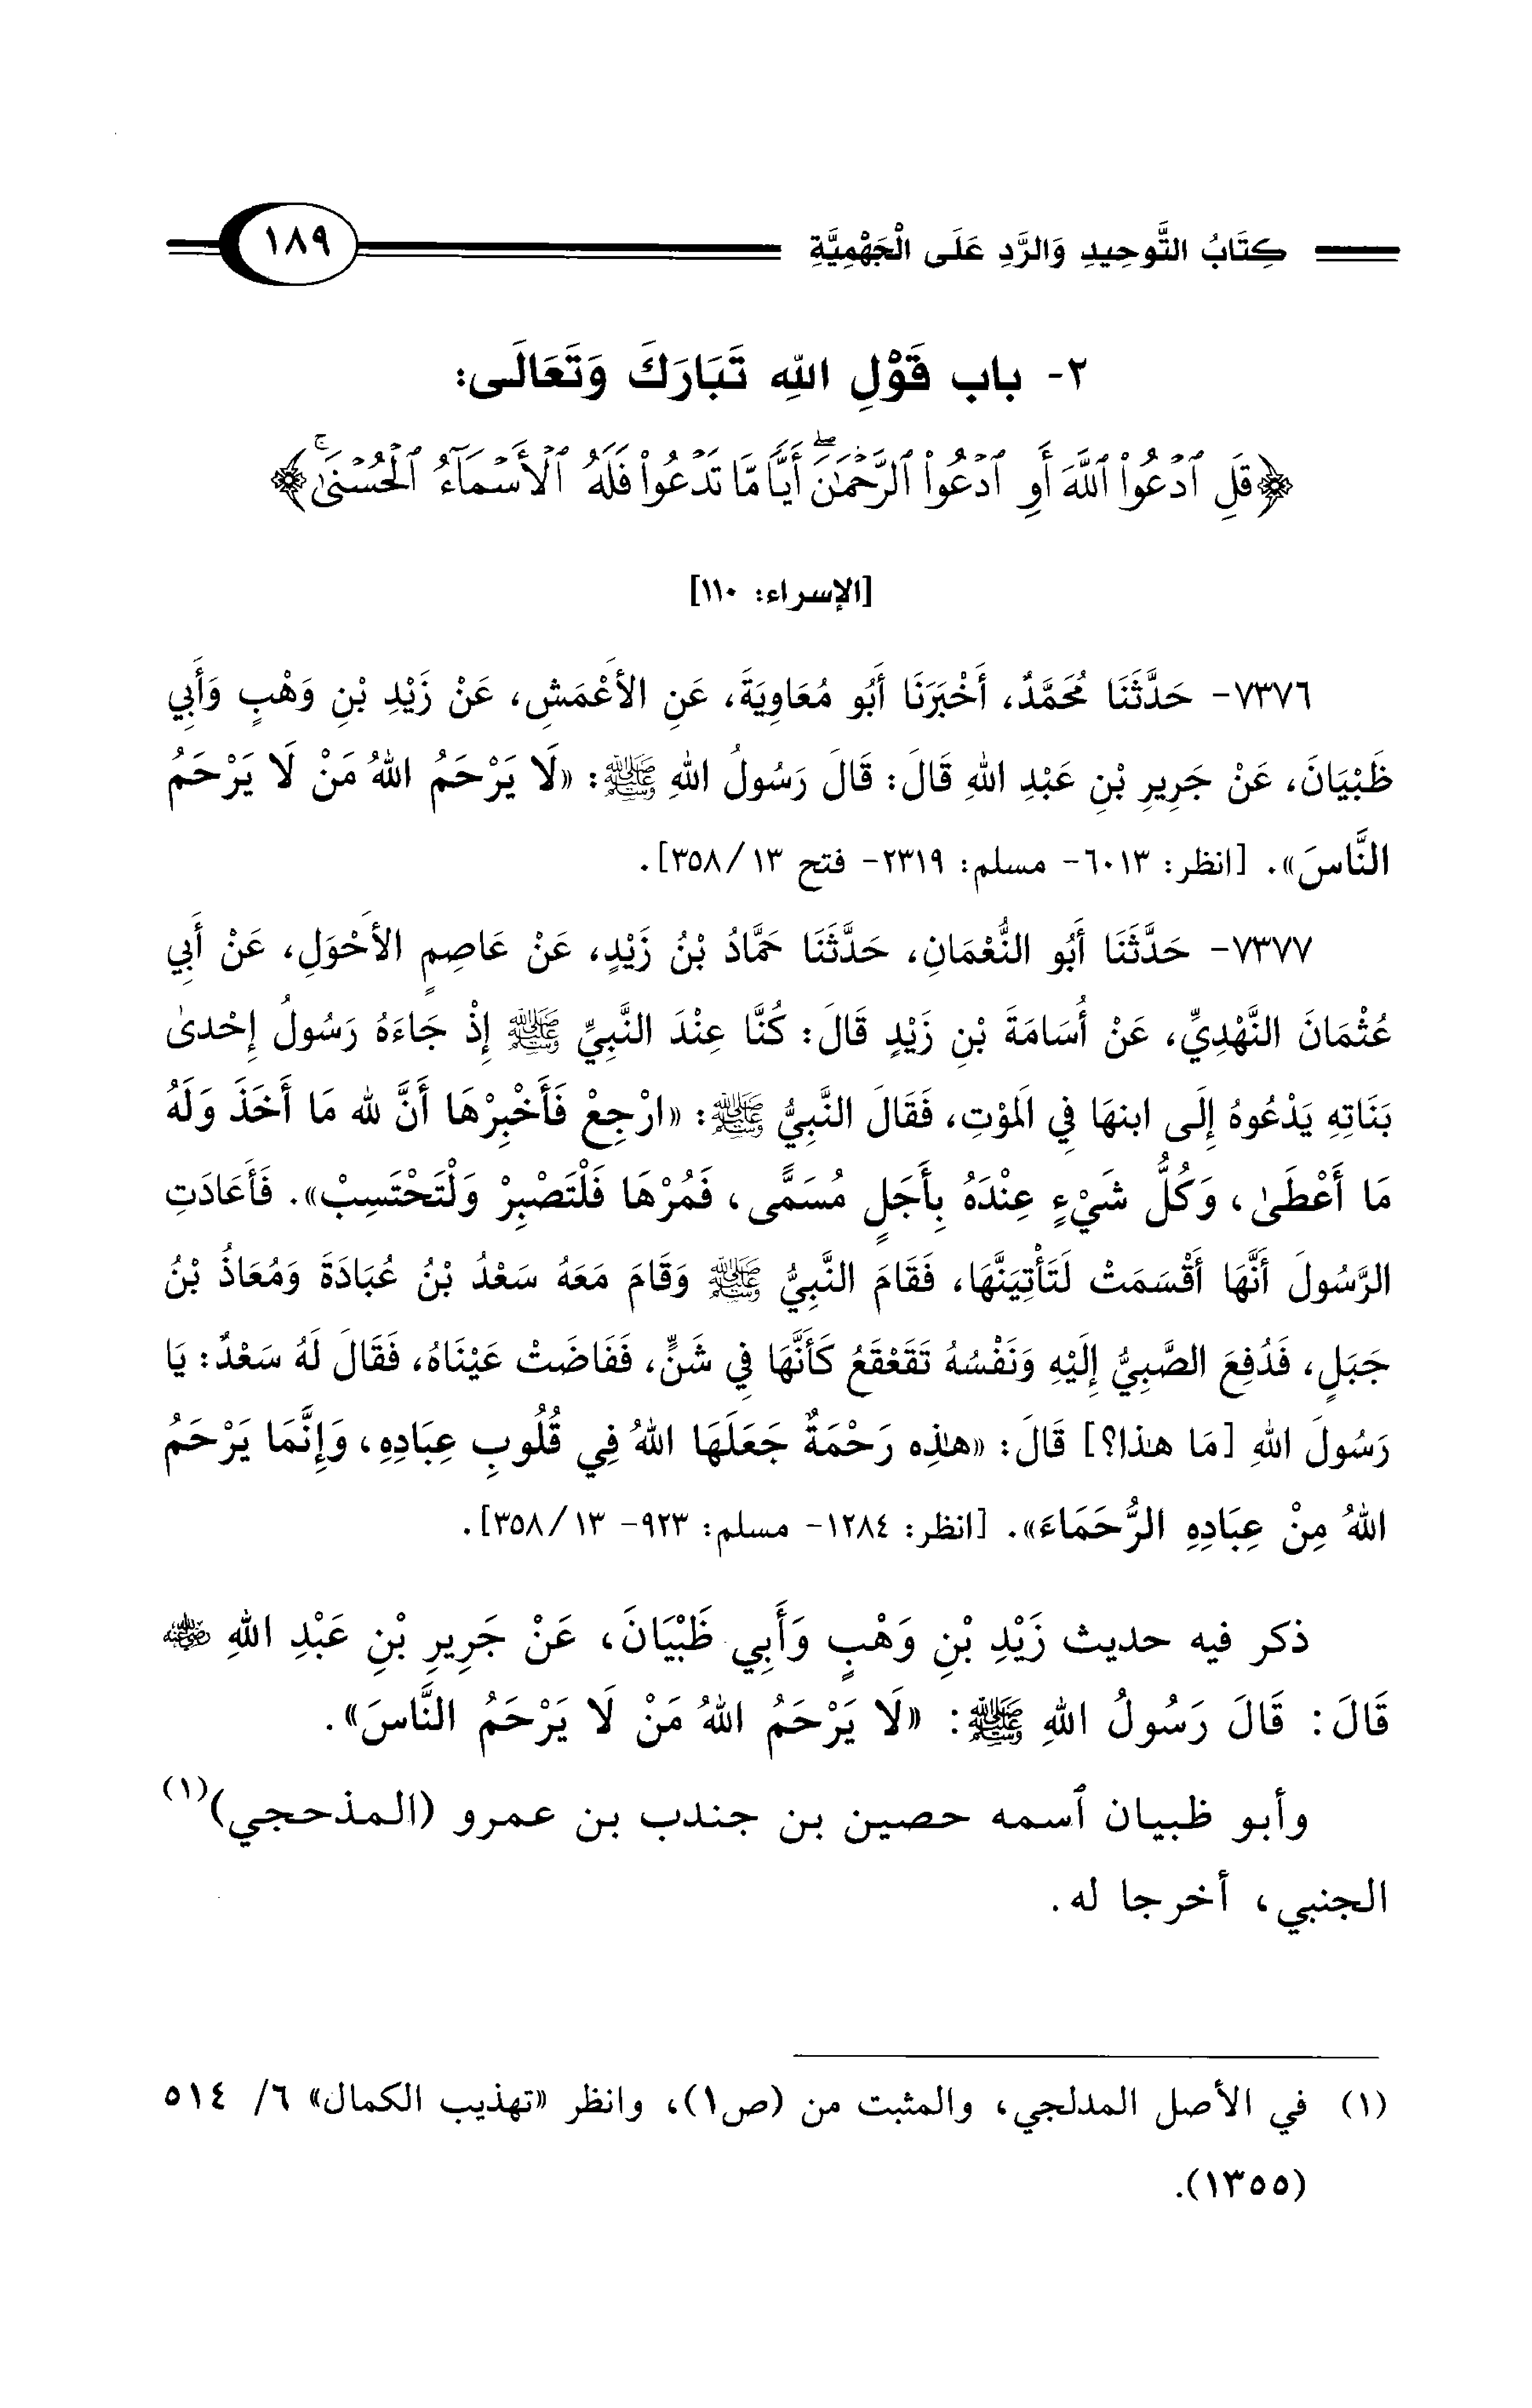 كِتَابُ التَّوحِيدِ وَالرَّدِ عَلَى الْجَهْمِيَّةِ ١٨٩
٢- باب قَوْلِ اللهِ تَبَارَكَ وَتَعَالَى:
﴿قُلِ ٱدْعُوا۟ ٱللَّهَ أَوِ ٱدْعُوا۟ ٱلرَّحْمَٰنَ ۖ أَيًّا مَّا تَدْعُوا۟ فَلَهُ ٱلْأَسْمَآءُ ٱلْحُسْنَىٰ ۚ﴾
[الإسراء: ١١٠]
٧٣٧٦- حَدَّثَنَا مُحَمَّدٌ، أَخْبَرَنَا أَبُو مُعَاوِيَةَ، عَنِ الأَعْمَشِ، عَنْ زَيْدِ بْنِ وَهْبٍ وَأَبِي
ظَبْيَانَ، عَنْ جَرِيرِ بْنِ عَبْدِ اللهِ قَالَ: قَالَ رَسُولُ اللهِ ﷺ: «لَا يَرْحَمُ اللهُ مَنْ لَا يَرْحَمُ
النَّاسَ». [انظر: ٦٠١٣- مسلم: ٢٣١٩- فتح ١٣/ ٣٥٨].
٧٣٧٧- حَدَّثَنَا أَبُو النُّعْمَانِ، حَدَّثَنَا حَمَّادُ بْنُ زَيْدٍ، عَنْ عَاصِمٍ الأَحْوَلِ، عَنْ أَبِي
عُثْمَانَ النَّهْدِيِّ، عَنْ أُسَامَةَ بْنِ زَيْدٍ قَالَ: كُنَّا عِنْدَ النَّبِيِّ ﷺ إِذْ جَاءَهُ رَسُولُ إِحْدىٰ
بَنَاتِهِ يَدْعُوهُ إِلَى ابنهَا فِي الَموْتِ، فَقَالَ النَّبِيُّ ﷺ: «ارْجِعْ فَأَخْبِرْهَا أَنَّ لله مَا أَخَذَ وَلَهُ
مَا أَعْطَىٰ، وَكُلُّ شَيْءٍ عِنْدَهُ بِأَجَلٍ مُسَمًّى، فَمُرْهَا فَلْتَصْبِرْ وَلْتَحْتَسِبْ». فَأَعَادَتِ
الرَّسُولَ أَنَّهَا أَقْسَمَتْ لَتَأْتِيَنَّهَا، فَقَامَ النَّبِيُّ ﷺ وَقَامَ مَعَهُ سَعْدُ بْنُ عُبَادَةَ وَمُعَاذُ بْنُ
جَبَلٍ، فَدُفِعَ الصَّبِيُّ إِلَيْهِ وَنَفْسُهُ تَقَعْقَعُ كَأَنَّهَا فِي شَنٍّ، فَفَاضَتْ عَيْنَاهُ، فَقَالَ لَهُ سَعْدٌ: يَا
رَسُولَ اللهِ [مَا هٰذا؟] قَالَ: «هٰذِه رَحْمَةٌ جَعَلَهَا اللهُ فِي قُلُوبِ عِبَادِهِ، وَإِنَّمَا يَرْحَمُ
اللهُ مِنْ عِبَادِهِ الرُّحَمَاءَ». [انظر: ١٢٨٤- مسلم: ٩٢٣- ١٣/ ٣٥٨].
ذكر فيه حديث زَيْدِ بْنِ وَهْبٍ وَأَبِي ظَبْيَانَ، عَنْ جَرِيرِ بْنِ عَبْدِ اللهِ رضي الله عنه
قَالَ: قَالَ رَسُولُ اللهِ ﷺ: «لَا يَرْحَمُ اللهُ مَنْ لَا يَرْحَمُ النَّاسَ».
وأبو ظبيان ٱسمه حصين بن جندب بن عمرو (المذحجي)(١)
الجنبي، أخرجا له.
(١) في الأصل المدلجي، والمثبت من (ص١)، وانظر «تهذيب الكمال» ٦/ ٥١٤
(١٣٥٥).